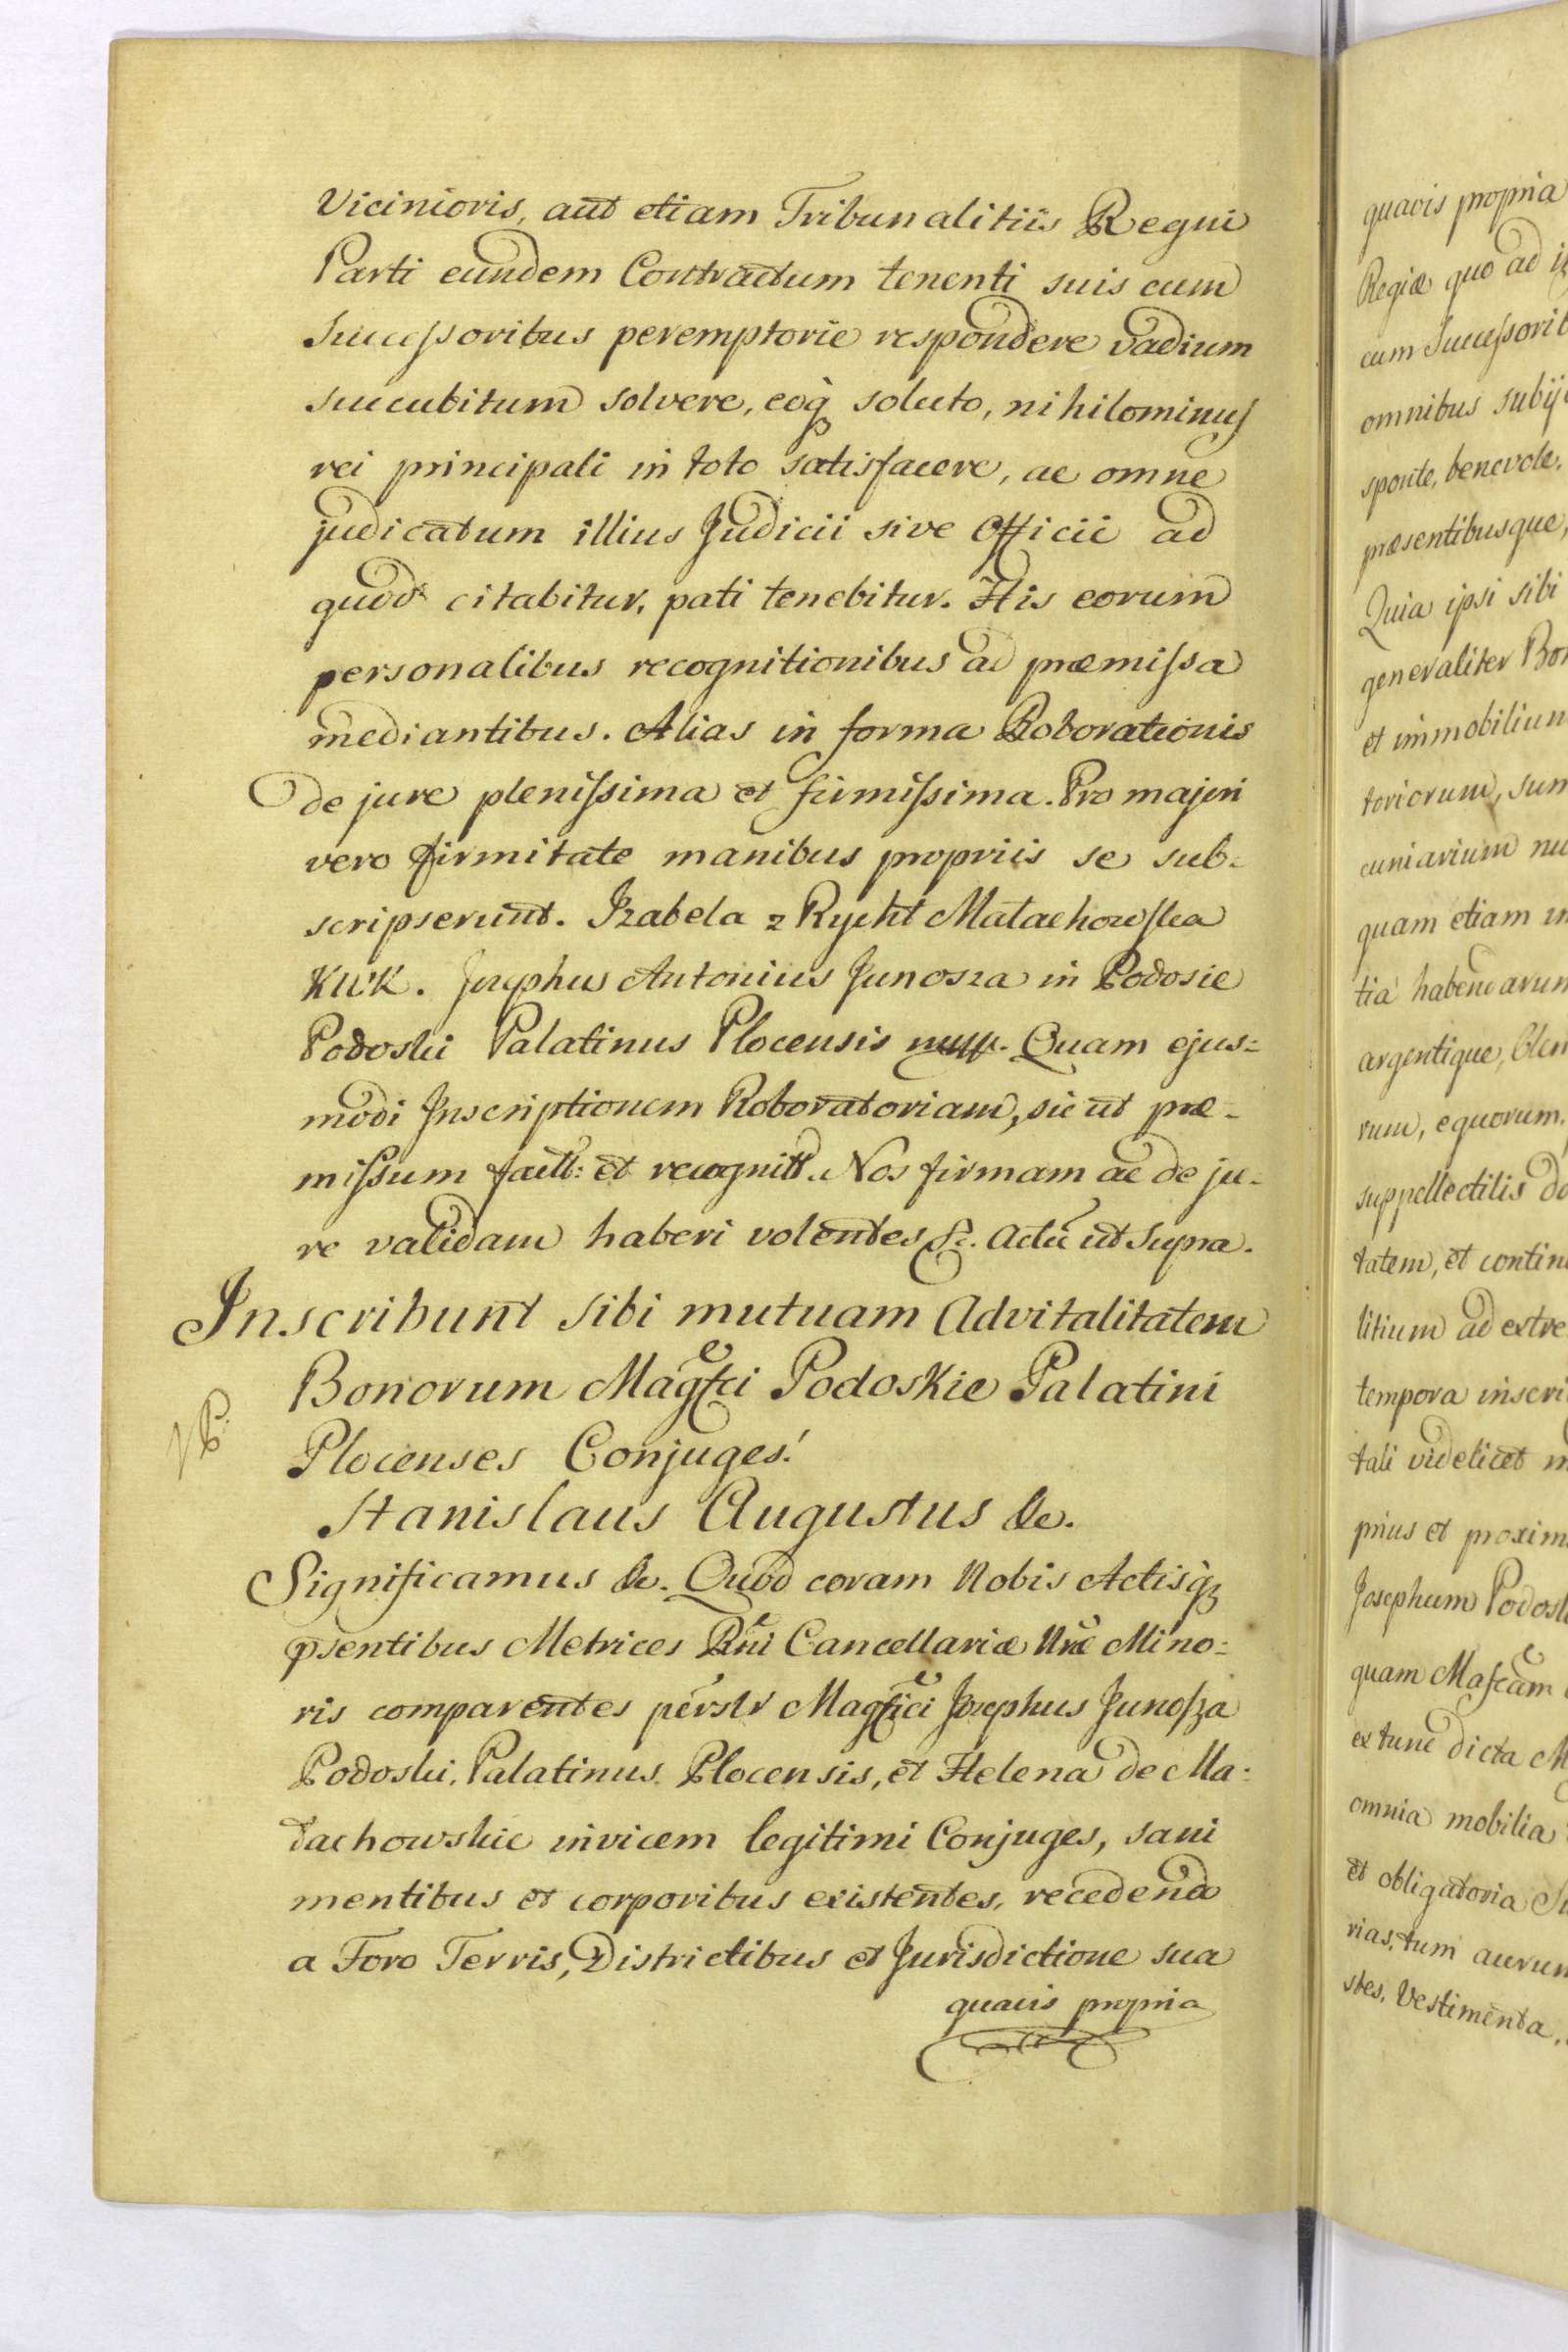 Vicinioris, aut etiam Tribunalitiis Regni
Parti eundem Contractum tenenti suis cum
Successoribus peremptorie respondere vadium
succubitum solvere, eoq; soluto, nihilominus
rei principali in toto satisfacere, ac omne
judicatum illius Judicii sive Officii ad
quod citabitur, pati tenebitur. His eorum
personalibus recognitionibus ad præmissa
mediantibus. Alias in forma Roborationis
de jure plenissima et firmissima. Pro majori
vero firmitate manibus propriis se sub=
scripserunt. Izabela z Rycht Małachowska
KWK. Jozephus Antonius Junosza in Podosie
Podoski Palatinus Plocensis mpp. Quam ejus=
modi Inscriptionem Roboratoriam, sic ut præ=
missum factt: et recognitt. Nos firmam ac de ju=
re validam haberi volentes &c. Actũ ut Supra.
Inscribunt sibi mutuam Advitalitatem
Bonorum Magfci Podoskie Palatini
Plocenses Conjuges.
Stanislaus Augustus &c.
Significamus &c. Quod coram Nobis Actisq;
psentibus Metrices Rñi Cancellariæ Nræ Mino=
ris comparentes perslr Magfici Jozephus Junosza
Podoski, Palatinus Plocensis, et Helena de Ma=
łachowskie invicem legitimi Conjuges, sani
mentibus et corporibus existentes, recedendo
a Foro Terris, Districtibus et Jurisdictione sua
quavis propria
quavis propria
Regiæ quo ad
cum Successorib
omnibus subij
sponte, benevole,
præsentibusque,
Quia ipsi sibi
generaliter Bo
et immobilium
toriorum, sum
cuniarium nu
quam etiam in
tia habendarum
argentique, Clen
rum, equorum,
suppellectilis do
tatem, et contin
litium ad extre
tempora inscri
tali videlicet m
prius et proxim
Josephum Podosk
quam Mafcam
ex tunc dicta M
omnia mobilia
et obligatoria Su
rias, tum aurum
stes, Vestimenta,